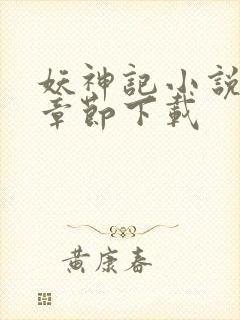 妖神記小説
章節下載
黄康春